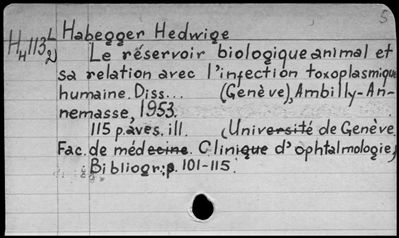 5
H4113 L2) Habegger Hedwige
Le réservoir biologique animal et
sa relation avec l'infection toxoplasmique
humaine. Diss... (Genève), Ambilly-An-
nemasse, 1953.
115 p. aves. ill. (Université de Genève
Fac. de médecine. Clinique d'ophtalmologie)
Bibliogr.: p. 101-115